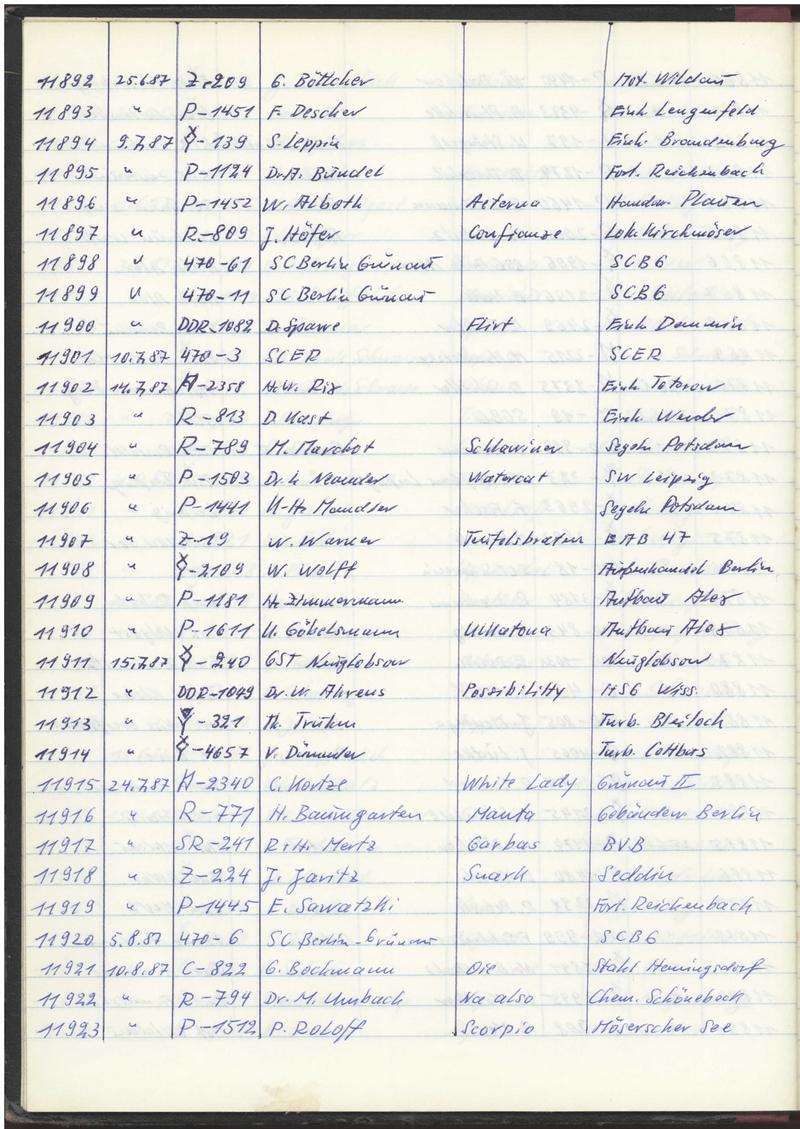 11892 25.6.87 Z-209 G. Böttcher Mot. Wildau
11893 " P-1451 F. Descher Einh. Lengenfeld
11894 9.7.87 Y-139 S. Leppin Einh. Brandenburg
11895 " P-1124 Dr. A. Bündel Fort. Reichenbach
11896 " P-1452 W. Alboth Aeterna Handw. Plauen
11897 " R-809 J. Höfer Confianze Lok. Kirchmöser
11898 " 470-61 SC Berlin Grünau SCBG
11899 " 470-11 SC Berlin Grünau SCBG
11900 " DDR-1082 D. Sparre Flirt Einh. Demmin
11901 10.7.87 470-3 SCER SCER
11902 14.7.87 H-2358 H.W. Rix Einh. Teterow
11903 " R-813 D. Kast Einh. Werder
11904 " R-789 M. Marchot Schlawiner Segeln Potsdam
11905 " P-1503 Dr. Watercat SW Leipzig
11906 " P-1441 U-H. Mandler Segeln Potsdam
11907 " Z-19 W. Warner Teufelsbraten EAB 47
11908 " Y-2109 W. Wolff Außenhandel Berlin
11909 " P-1181 H. Zimmermann Aufbau Alex
11910 " P-1611 U. Göbelsmann Aufbau Alex
11911 15.7.87 Y-240 GST Neuglobsow Neuglobsow
11912 " DDR-1049 Dr. W. Ahrens Possibility HSG Wiss.
11913 " Y-321 Th. Truhm Turb. Bleiloch
11914 " Y-4657 V. Turb. Cottbus
11915 24.7.87 H-2340 C. Kortze White Lady Grünau II
11916 " R-771 H. Baumgarten Manta Gebäudew. Berlin
11917 " SR-241 R.H. Mertz Garbas BVB
11918 " Z-224 J. Jaritz Snark Seddin
11919 " P-1445 E. Sawatzki Fort. Reichenbach
11920 5.8.87 470-6 SC Berlin-Grünau SCBG
11921 10.8.87 C-822 G. Bochmann Oie Stahl Hennigsdorf
11922 " R-794 Dr. M. Umbach Na also Chem. Schönebeck
11923 " P-1512 P. Roloff Scorpio Möserscher See